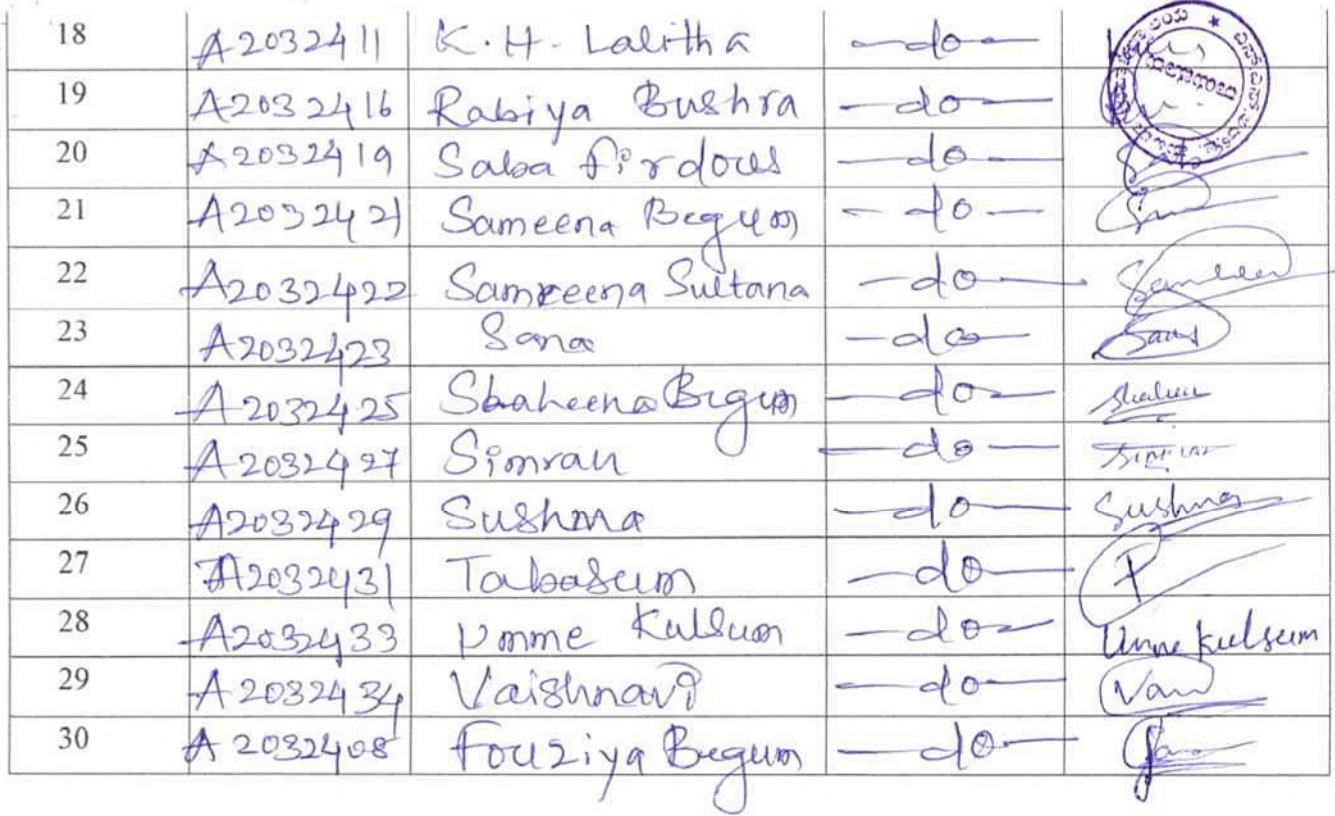 18 A2032411 K.H. Lalitha -do-
19 A2032416 Rabiya Bushra -do-
20 A2032419 Saba firdous -do-
21 A2032421 Sameena Begum -do-
22 A2032422 Samreena Sultana -do- Sameena
23 A2032423 Sana -do- Sana
24 A2032425 Shaheena Begum -do- Shaheen
25 A2032427 Simran -do- Simran
26 A2032429 Sushma -do- Sushma
27 A2032431 Tabasum -do- T
28 A2032433 Umme Kulsum -do- Umme Kulsum
29 A2032434 Vaishnavi -do- Van
30 A2032408 Fouziya Begum -do-